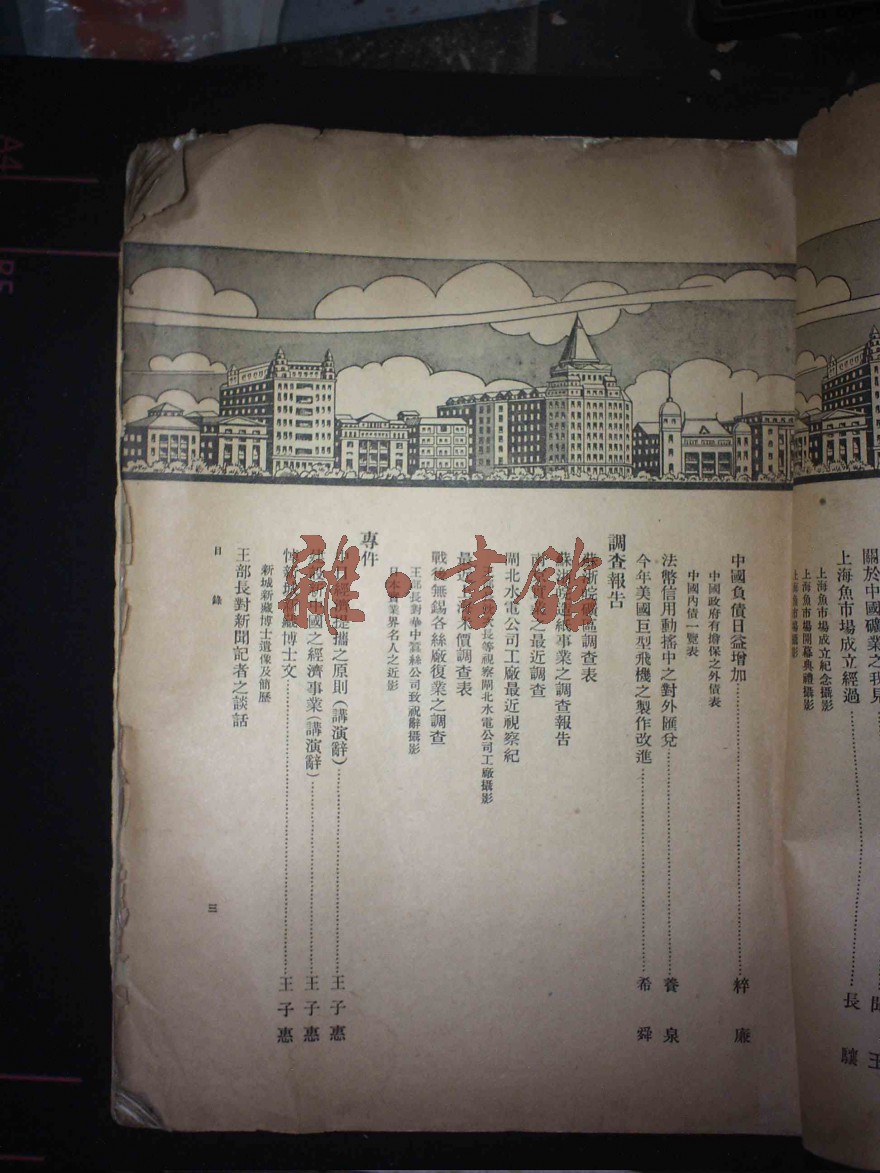 關於中國礦業之我見
上海魚市場成立經過……長驥
上海魚市場成立紀念攝影
上海魚市場開幕典禮攝影
上海魚市場攝影
中國負債日益增加……粹廉
中國政府有擔保之外債表
中國內債一覽表
法幣信用動搖中之對外匯兌……養泉
今年美國巨型飛機之製作改進……希舜
調查報告
蘇浙皖礦區調查表
事業之調查報告
之最近調查
閘北水電公司工廠最近視察紀
長等視察閘北水電公司工廠攝影
戰後無錫各絲廠復業之調查
王部長對華中蠶絲公司致視辭攝影
最近上海米價調查表
日本 業界名人之近影
專件
經濟提攜之原則(講演辭)……王子惠
建設新中國之經濟事業(講演辭)……王子惠
悼新城新藏博士文……王子惠
新城新藏博士遺像及簡歷
王部長對新聞記者之談話
目錄
三
雜·書館
A4
B5